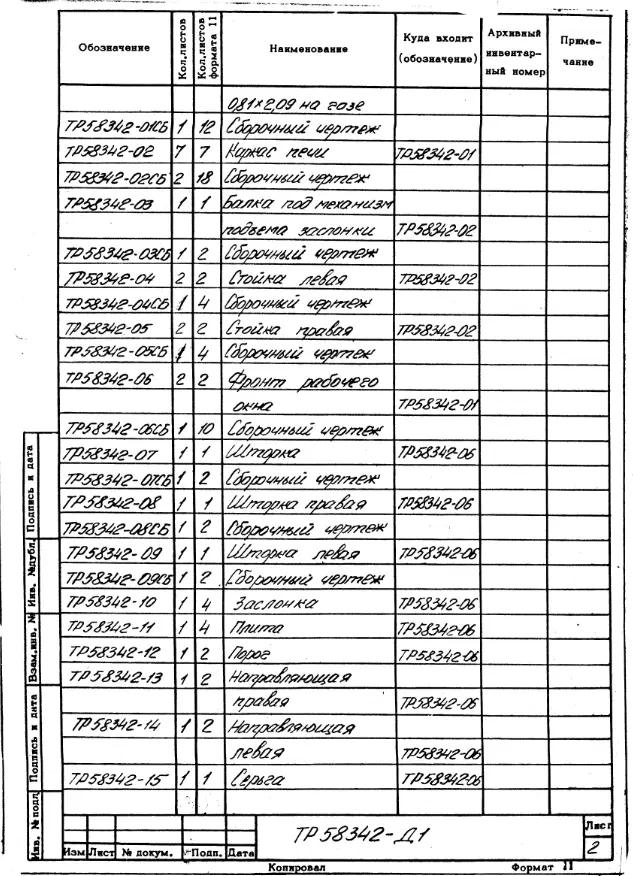 Обозначение Кол.листов Кол.листов формата 11 Наименование Куда входит (обозначение) Архивный инвентар- ный номер Приме- чание
0,81×2,09 на газе
ТР58342-01СБ 1 12 Сборочный чертеж
ТР58342-02 7 7 Каркас печи ТР58342-01
ТР58342-02СБ 2 18 Сборочный чертеж
ТР58342-03 1 1 Балка под механизм
подъема заслонки ТР58342-02
ТР58342-03СБ 1 2 Сборочный чертеж
ТР58342-04 2 2 Стойка левая ТР58342-02
ТР58342-04СБ 1 4 Сборочный чертеж
ТР58342-05 2 2 Стойка правая ТР58342-02
ТР58342-05СБ 1 4 Сборочный чертеж
ТР58342-06 2 2 Фронт рабочего
окна ТР58342-01
ТР58342-06СБ 1 10 Сборочный чертеж
ТР58342-07 1 1 Шторка ТР58342-06
ТР58342-07СБ 1 2 Сборочный чертеж
ТР58342-08 1 1 Шторка правая ТР58342-06
ТР58342-08СБ 1 2 Сборочный чертеж
ТР58342-09 1 1 Шторка левая ТР58342-06
ТР58342-09СБ 1 2 Сборочный чертеж
ТР58342-10 1 4 Заслонка ТР58342-06
ТР58342-11 1 4 Плита ТР58342-06
ТР58342-12 1 2 Порог ТР58342-06
ТР58342-13 1 2 Направляющая
правая ТР58342-06
ТР58342-14 1 2 Направляющая
левая ТР58342-06
ТР58342-15 1 1 Серьга ТР58342-06
Подпись и дата
Инв. №дубл.
Взам.инв. №
Подпись и дата
Инв. № подл
ТР58342-Д1
Лист
2
Изм Лист № докум. Подп. Дата
Копировал Формат 11